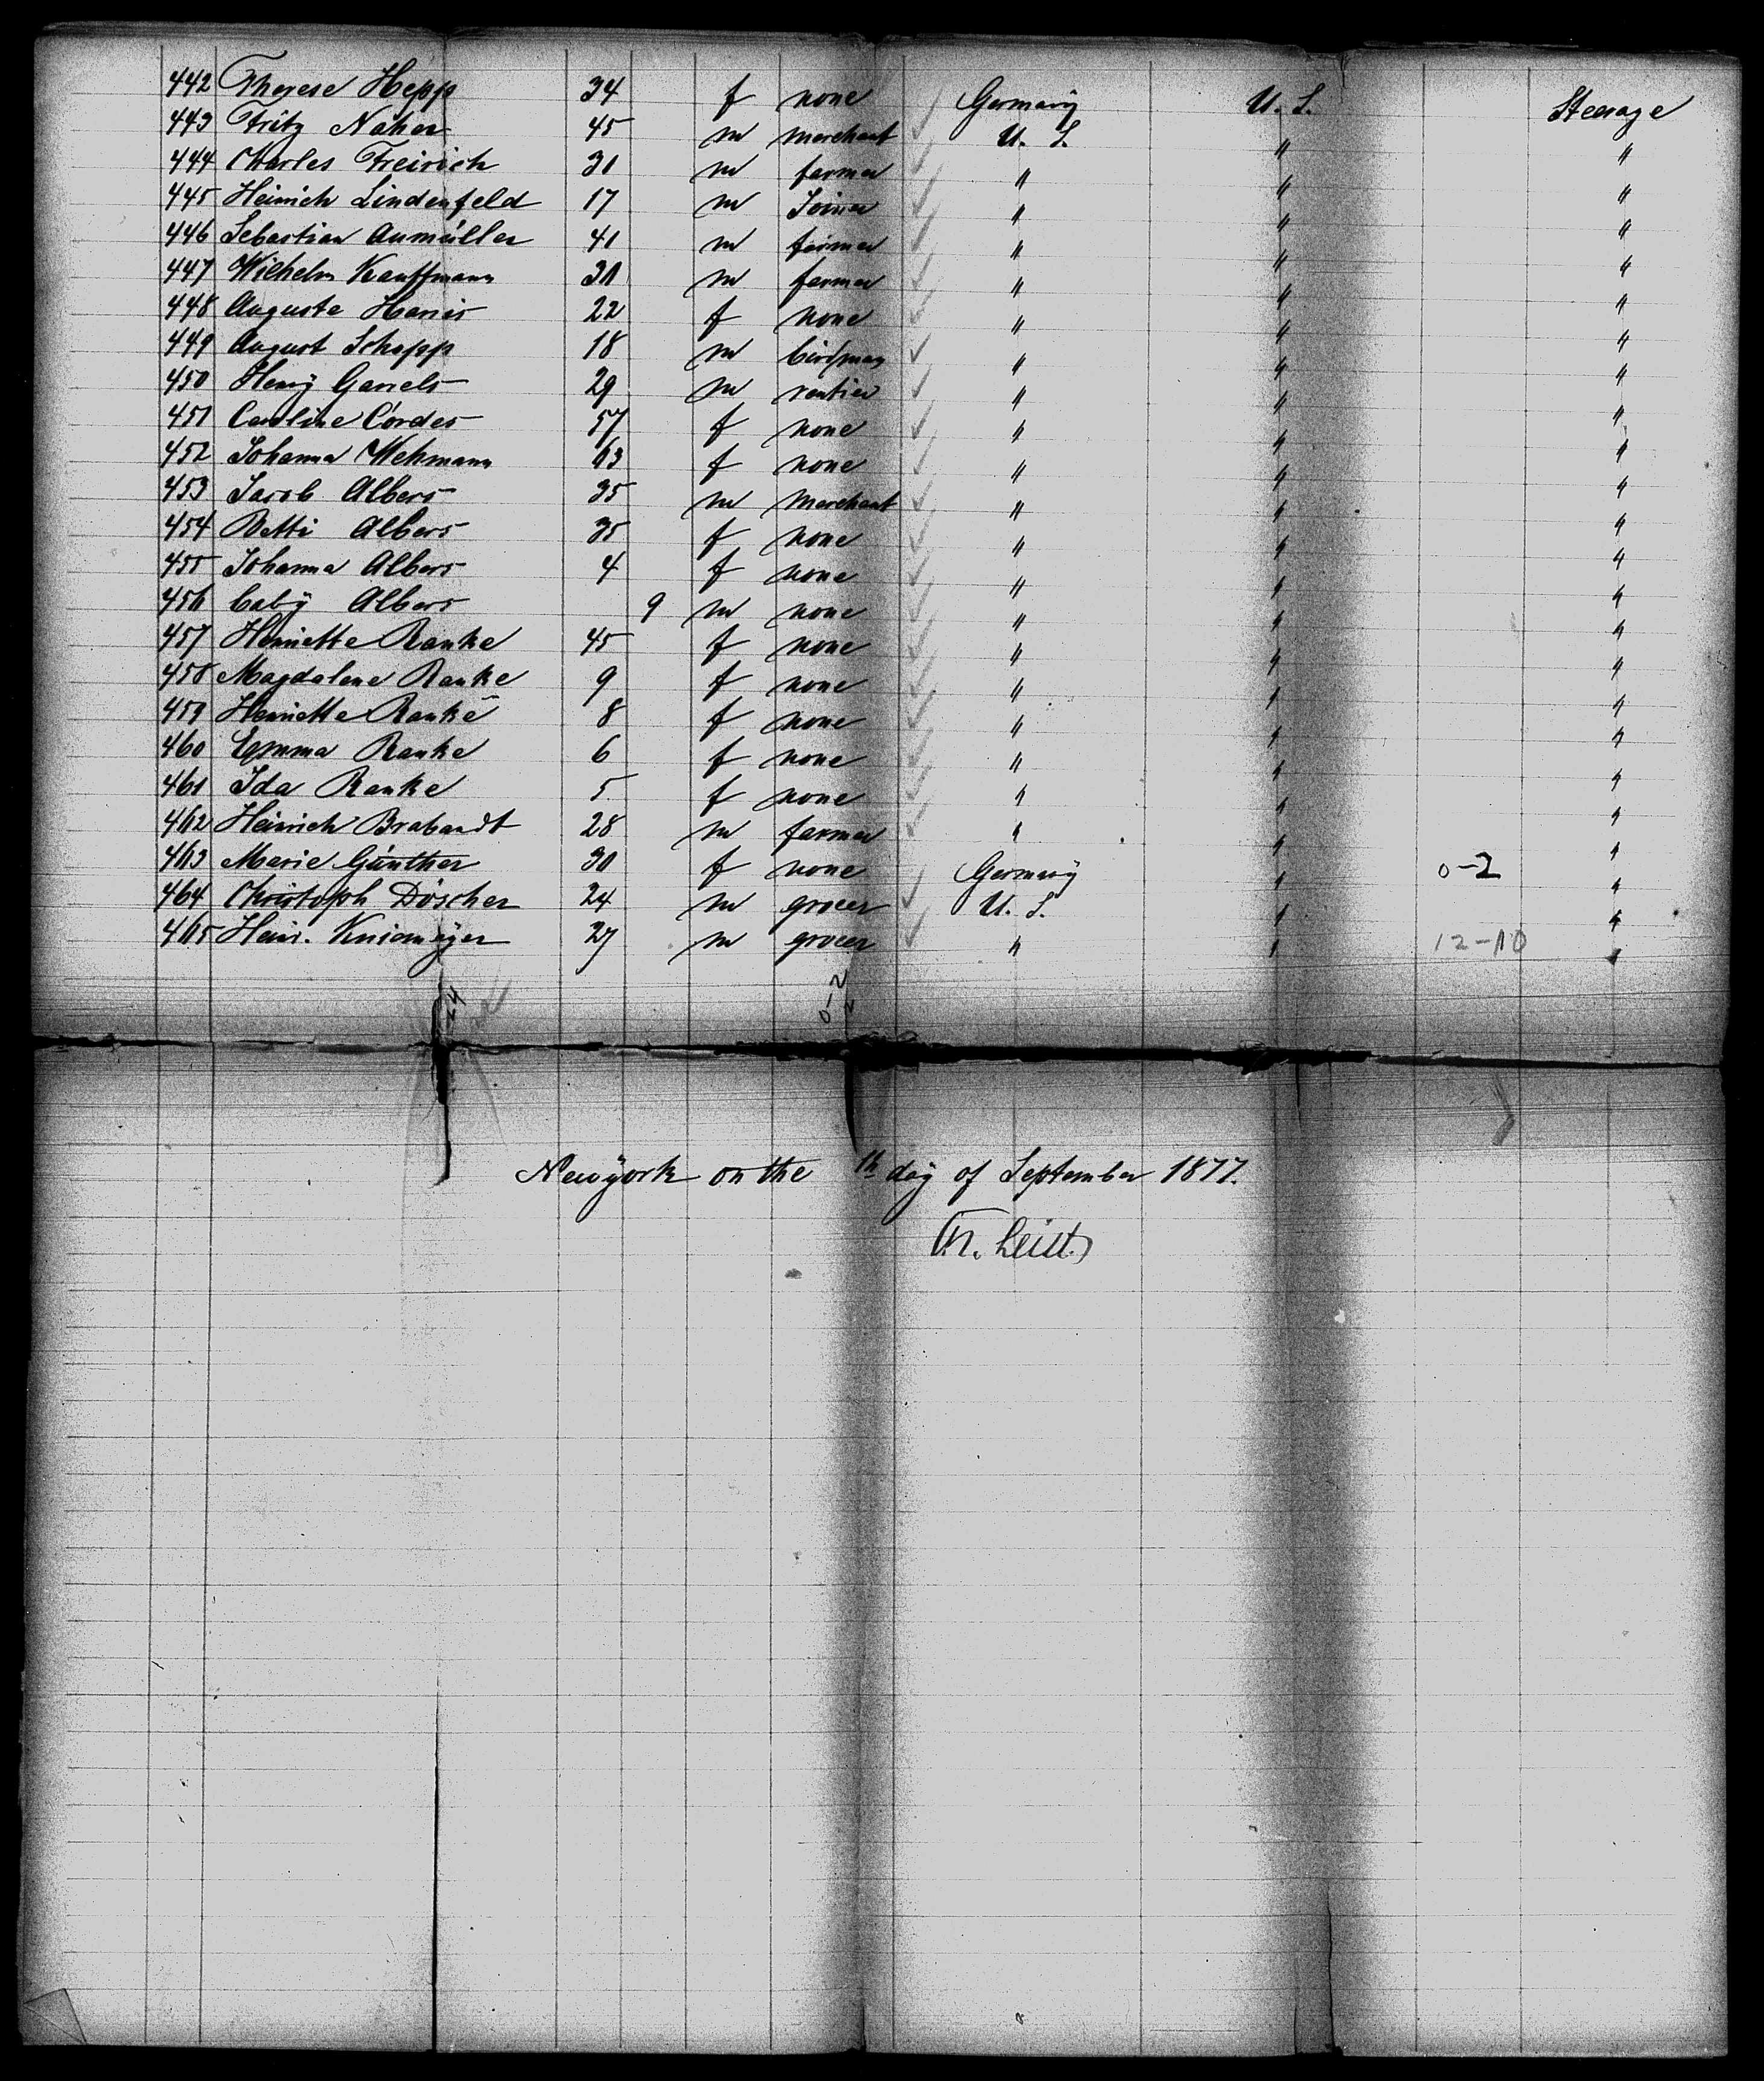 442 Therese Hepp 34 f none Germany U. S. Steerage
443 Fritz Naher 45 m merchant U. S. " "
444 Charles Freirich 30 m farmer " " "
445 Heinrich Lindenfeld 17 m Joiner " " "
446 Sebastian Aumüller 41 m farmer " " "
447 Wilhelm Kauffmann 31 m farmer " " "
448 Auguste Harris 22 f none " " "
449 August Schepp 18 m birdman " " "
450 Henry Garrels 29 m rentier " " "
451 Caroline Cordes 57 f none " " "
452 Johanna Wehmann 63 f none " " "
453 Jacob Albers 35 m merchant " " "
454 Betti Albers 35 f none " " "
455 Johanna Albers 4 f none " " "
456 baby Albers 9 m none " " "
457 Henriette Ranke 45 f none " " "
458 Magdalene Ranke 9 f none " " "
459 Henriette Ranke 8 f none " " "
460 Emma Ranke 6 f none " " "
461 Ida Ranke 5 f none " " "
462 Heinrich Brabandt 28 m farmer " " "
463 Marie Günther 30 f none Germany " 0-2 "
464 Christoph Döscher 24 m grocer U. S. " "
465 Heinr. Kniemeyer 27 m grocer " " 12-10 "
24
0-2
2
Newyork on the th day of September 1877.